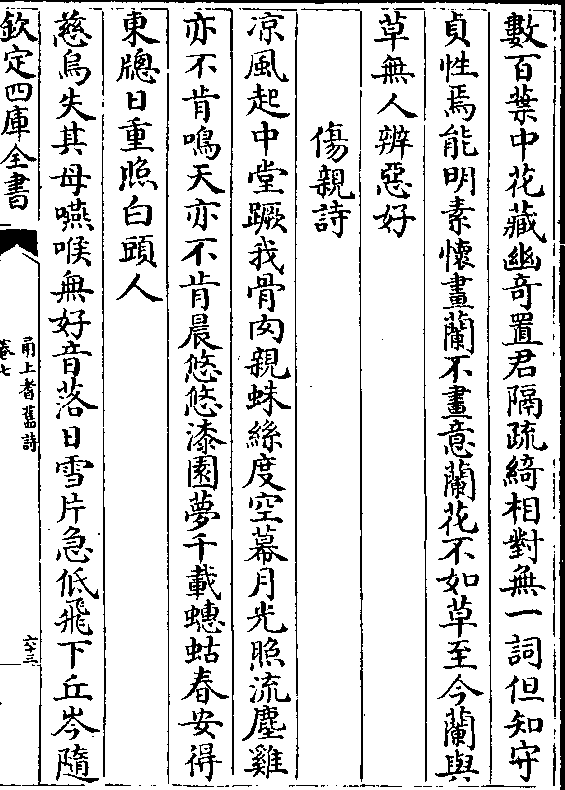 數百葉中花藏幽奇置君隔疏綺相對無一詞但知守
貞性焉能明素懷畫蘭不畫意蘭花不如草至今蘭與
草無人辨惡好
傷親詩
凉風起中堂蹶我骨肉親蛛絲度空幕月光照流塵雞
亦不肯鳴天亦不肯晨悠悠漆園夢千載蟪蛄春安得
東牕日重照白頭人
慈烏失其母嚥喉無好音落日雪片急低飛下丘岑隨
欽定四庫全書
甬上耆舊詩
卷七
六十三